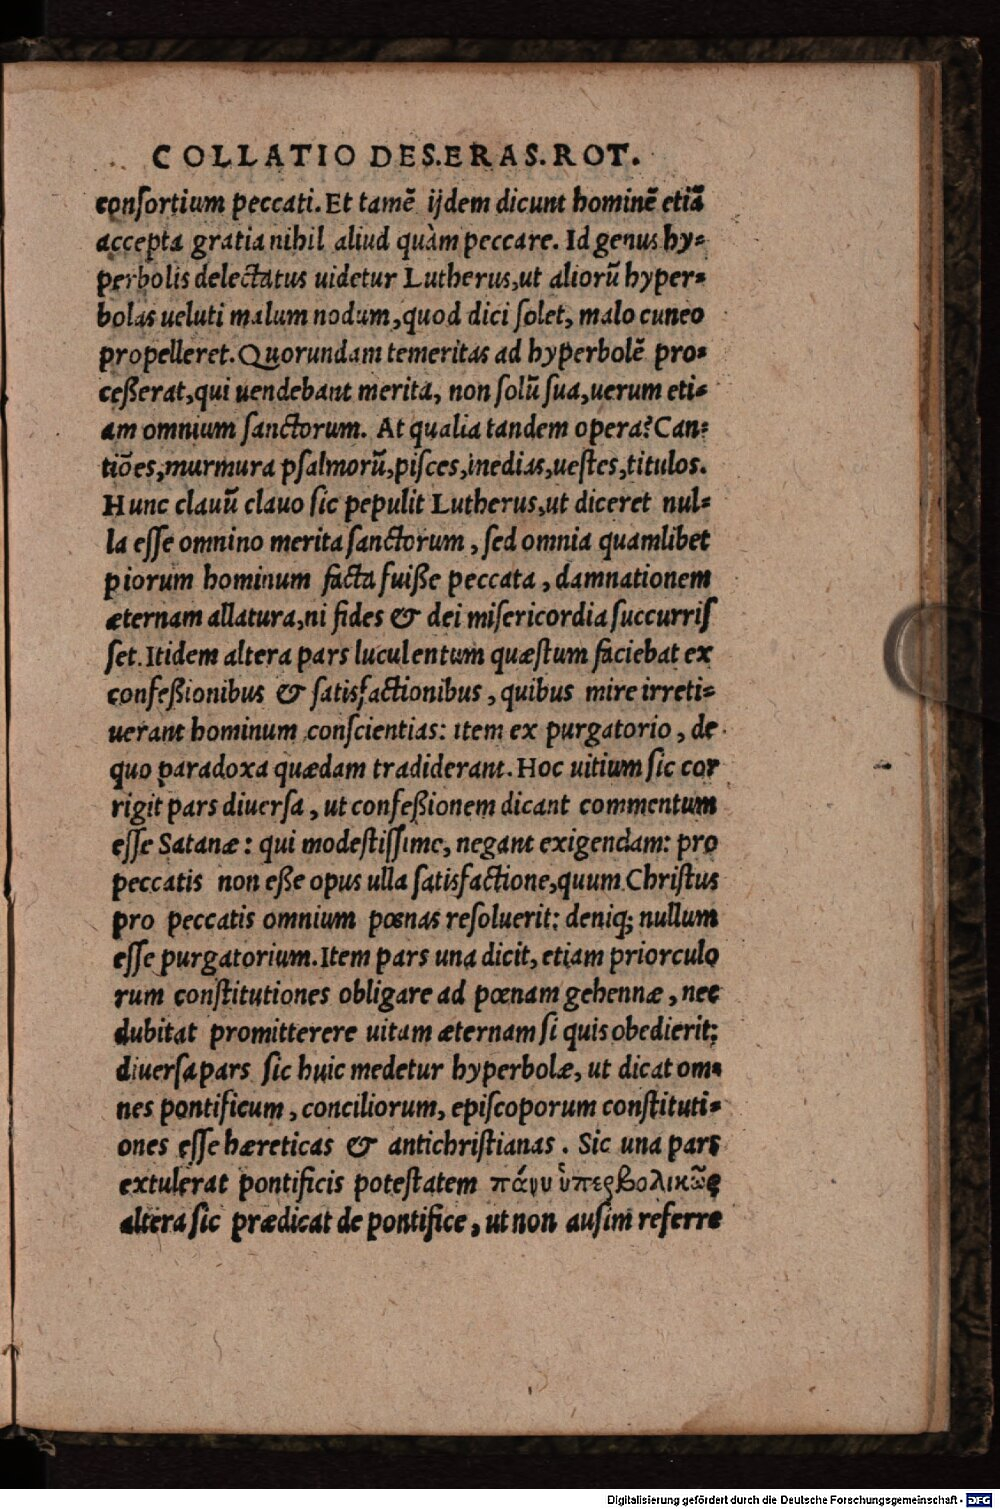 COLLATIO DES.ERAS.ROT.
conſortium peccati. Et tamē ijdem dicunt hominē etiā
accepta gratia nihil aliud quàm peccare. Id genus hy⸗
perbolis delectatus uidetur Lutherus,ut aliorū hyper⸗
bolas ueluti malum nodum,quod dici ſolet, malo cuneo
propelleret. Quorundam temeritas ad hyperbolē pro⸗
ceßerat,qui uendebant merita, non ſolū ſua,uerum eti⸗
am omnium ſanctorum. At qualia tandem opera? Can⸗
tiōes,murmura pſalmorū,piſces,inedias,ueſtes,titulos.
Hunc clauū clauo ſic pepulit Lutherus,ut diceret nul⸗
la eſſe omnino merita ſanctorum , ſed omnia quamlibet
piorum hominum facta fuiße peccata , damnationem
æternam allatura,ni fides & dei miſericordia ſuccurriſ
ſet. Itidem altera pars luculentum quæſtum faciebat ex
confeßionibus & ſatisfactionibus , quibus mire irreti⸗
uerant hominum conſcientias: item ex purgatorio , de
quo paradoxa quædam tradiderant. Hoc uitium ſic cor
rigit pars diuerſa , ut confeßionem dicant commentum
eſſe Satanæ : qui modeſtiſſime, negant exigendam: pro
peccatis non eße opus ulla ſatisfactione,quum Chriſtus
pro peccatis omnium pœnas reſoluerit: deniq; nullum
eſſe purgatorium. Item pars una dicit, etiam priorculo
rum conſtitutiones obligare ad pœnam gehennæ , nec
dubitat promitterere uitam æternam ſi quis obedierit:
diuerſa pars ſic huic medetur hyperbolæ, ut dicat om⸗
nes pontificum , conciliorum, epiſcoporum conſtituti⸗
ones eſſe hæreticas & antichriſtianas . Sic una pars
extulerat pontificis poteſtatem πάνυ ὑπερβολικῶς
altera ſic prædicat de pontifice , ut non auſim referre
Digitalisierung gefördert durch die Deutsche Forschungsgemeinschaft - DFG